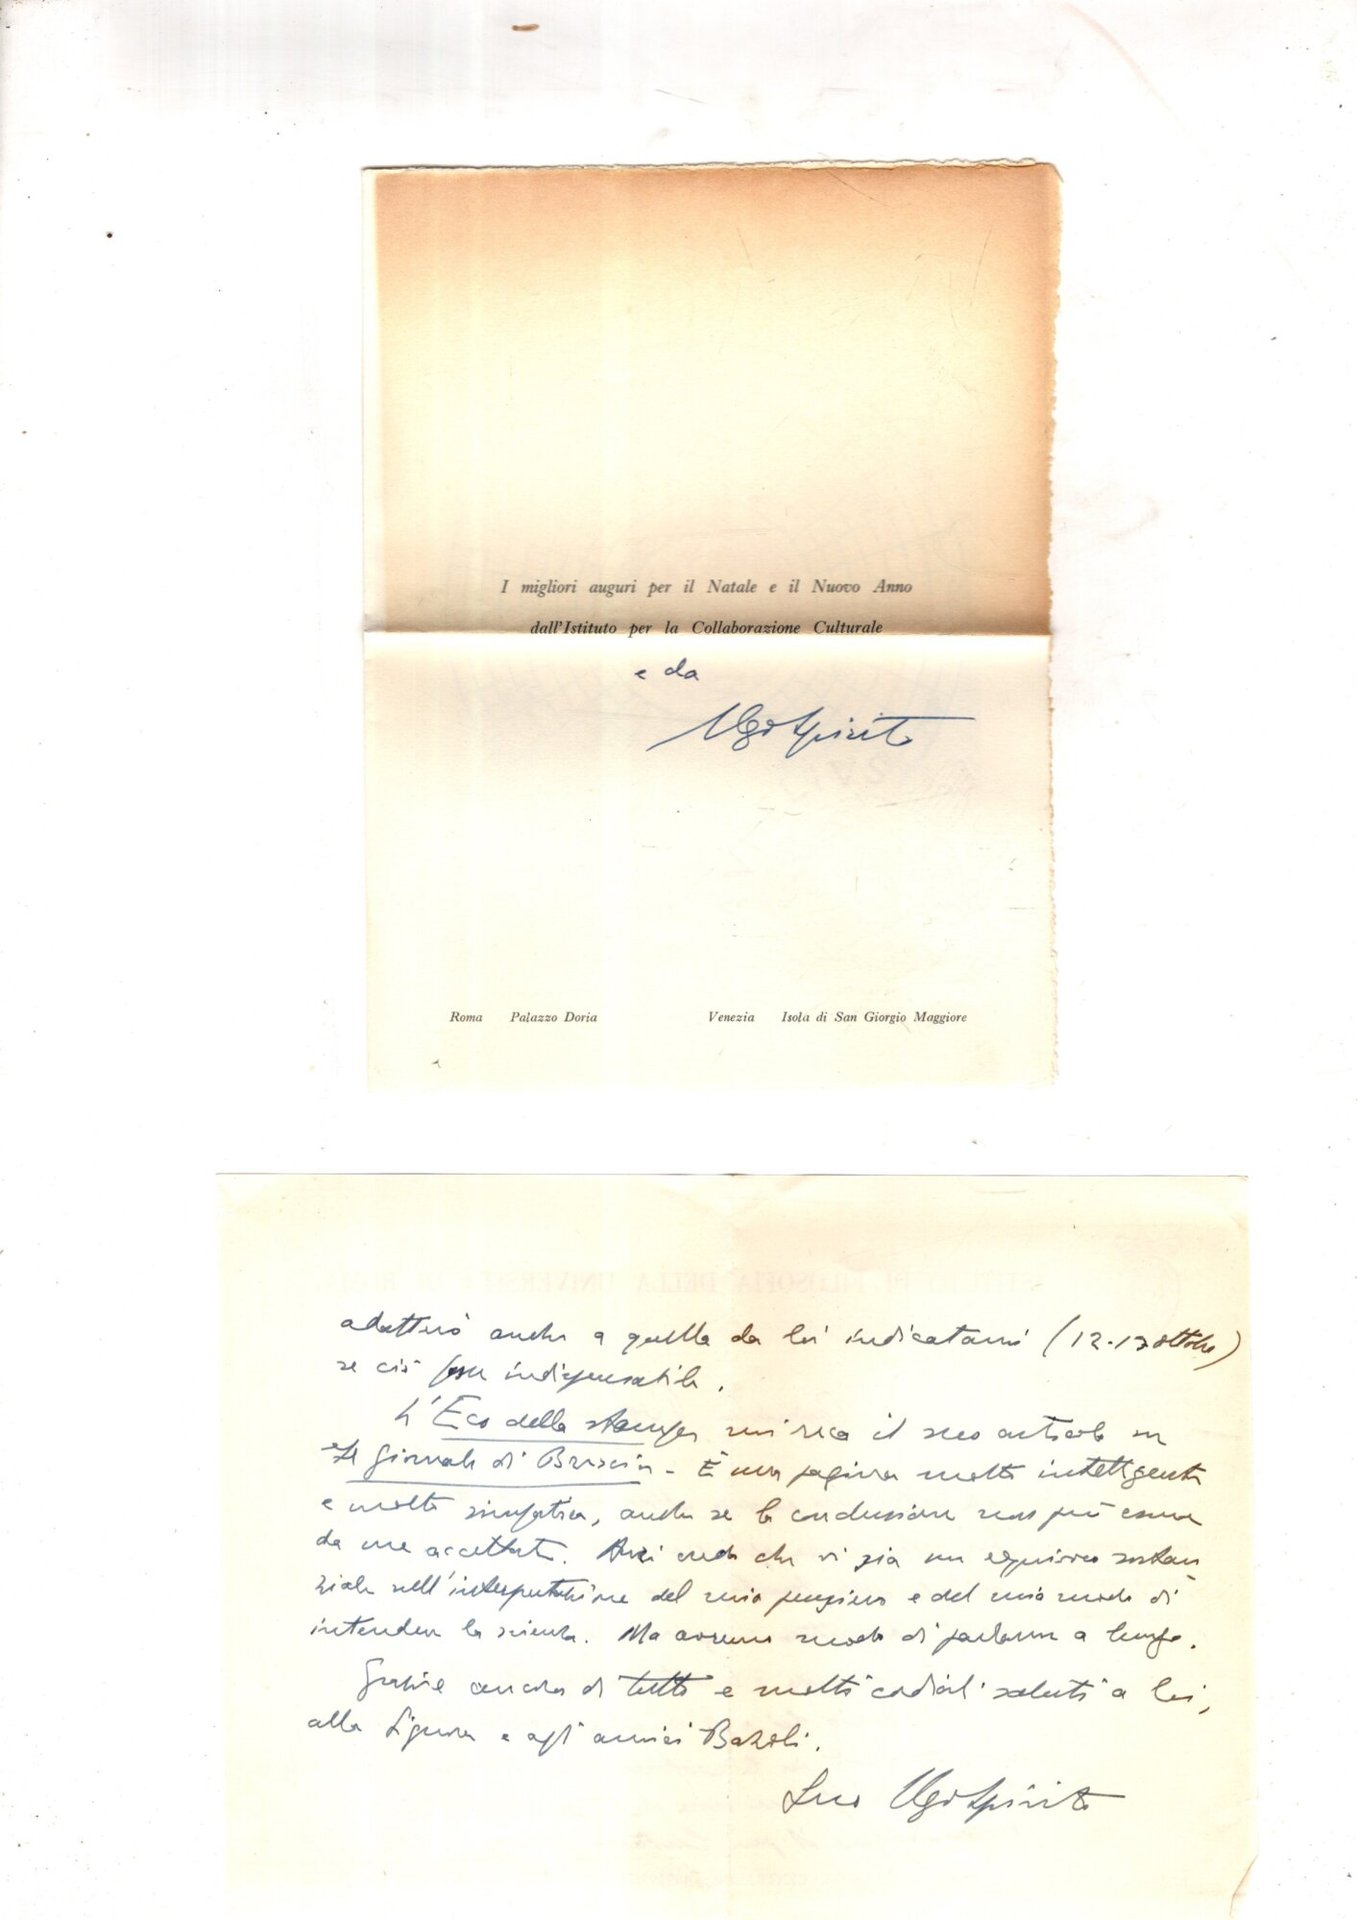 I migliori auguri per il Natale e il Nuovo Anno
dall'Istituto per la Collaborazione Culturale
e da
Ugo Spirito
Roma Palazzo Doria Venezia Isola di San Giorgio Maggiore
adatterò anche a quella da lei indicatami (12-13 ottobre)
se ciò fosse indispensabile.
L'Eco della stampa mi reca il suo articolo su
Il Giornale di Brescia. È una pagina molto intelligente
e molto simpatica, anche se la conclusione non può essere
da me accettata. Anzi credo che vi sia un equivoco sostan
ziale nell'interpretazione del mio pensiero e del mio modo di
intendere la scienza. Ma avremo modo di parlarne a lungo.
Grazie ancora di tutto e molti cordiali saluti a lei,
alla Signora e agli amici Bazoli.
Suo Ugo Spirito